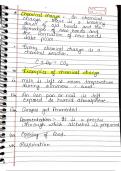 Chemical change - In chemical
change, there is a breaking
of old bonds and the
formation of new bonds and
the formation of new bonds
take place.
Every chemical change is a
chemical reaction.
C + O₂ → CO₂
Examples of chemical change
milk is left at room temperature
during summers
An iron pan or nail is left
exposed to humid atmosphere.
Grapes get fermented
Fermentation: It is a process
through which alcohol is prepared
Cooking of food.
Respiration